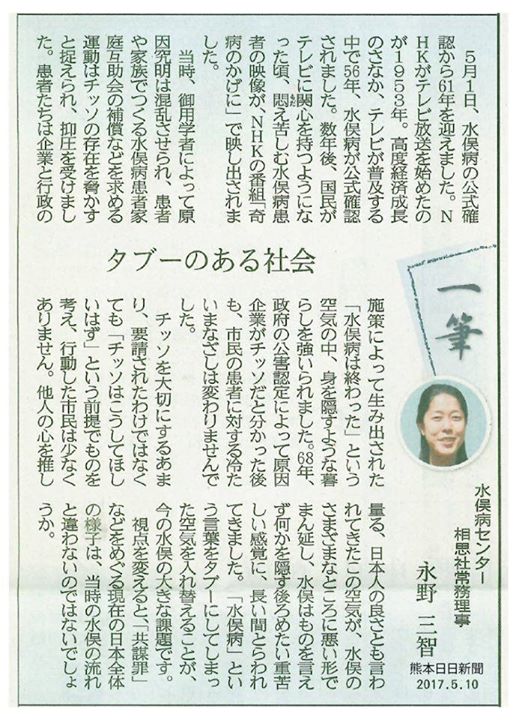 一筆
水俣病センター
相思社常務理事
永野 三智
タブーのある社会
５月１日、水俣病の公式確
認から61年を迎えました。Ｎ
ＨＫがテレビ放送を始めたの
が１９５３年。高度経済成長
のさなか、テレビが普及する
中で56年、水俣病が公式確認
されました。数年後、国民が
テレビに関心を持つようにな
った頃、悶え苦しむ水俣病患
者の映像が、ＮＨＫの番組「奇
病のかげに」で映し出されま
した。
当時、御用学者によって原
因究明は混乱させられ、患者
や家族でつくる水俣病患者家
庭互助会の補償などを求める
運動はチッソの存在を脅かす
と捉えられ、抑圧を受けまし
た。患者たちは企業と行政の
施策によって生み出された
「水俣病は終わった」という
空気の中、身を隠すような暮
らしを強いられました。68年、
政府の公害認定によって原因
企業がチッソだと分かった後
も、市民の患者に対する冷た
いまなざしは変わりませんで
した。
チッソを大切にするあま
り、要請されたわけではなく
ても「チッソはこうしてほし
いはず」という前提でものを
考え、行動した市民は少なく
ありません。他人の心を推し
量る、日本人の良さとも言わ
れてきたこの空気が、水俣の
さまざまなところに悪い形で
まん延し、水俣はものを言え
ず何かを隠す後ろめたい重苦
しい感覚に、長い間とらわれ
てきました。「水俣病」とい
う言葉をタブーにしてしまっ
た空気を入れ替えることが、
今の水俣の大きな課題です。
視点を変えると、「共謀罪」
などをめぐる現在の日本全体
の様子は、当時の水俣の流れ
と違わないのではないでしょ
うか。
熊本日日新聞
2017.5.10